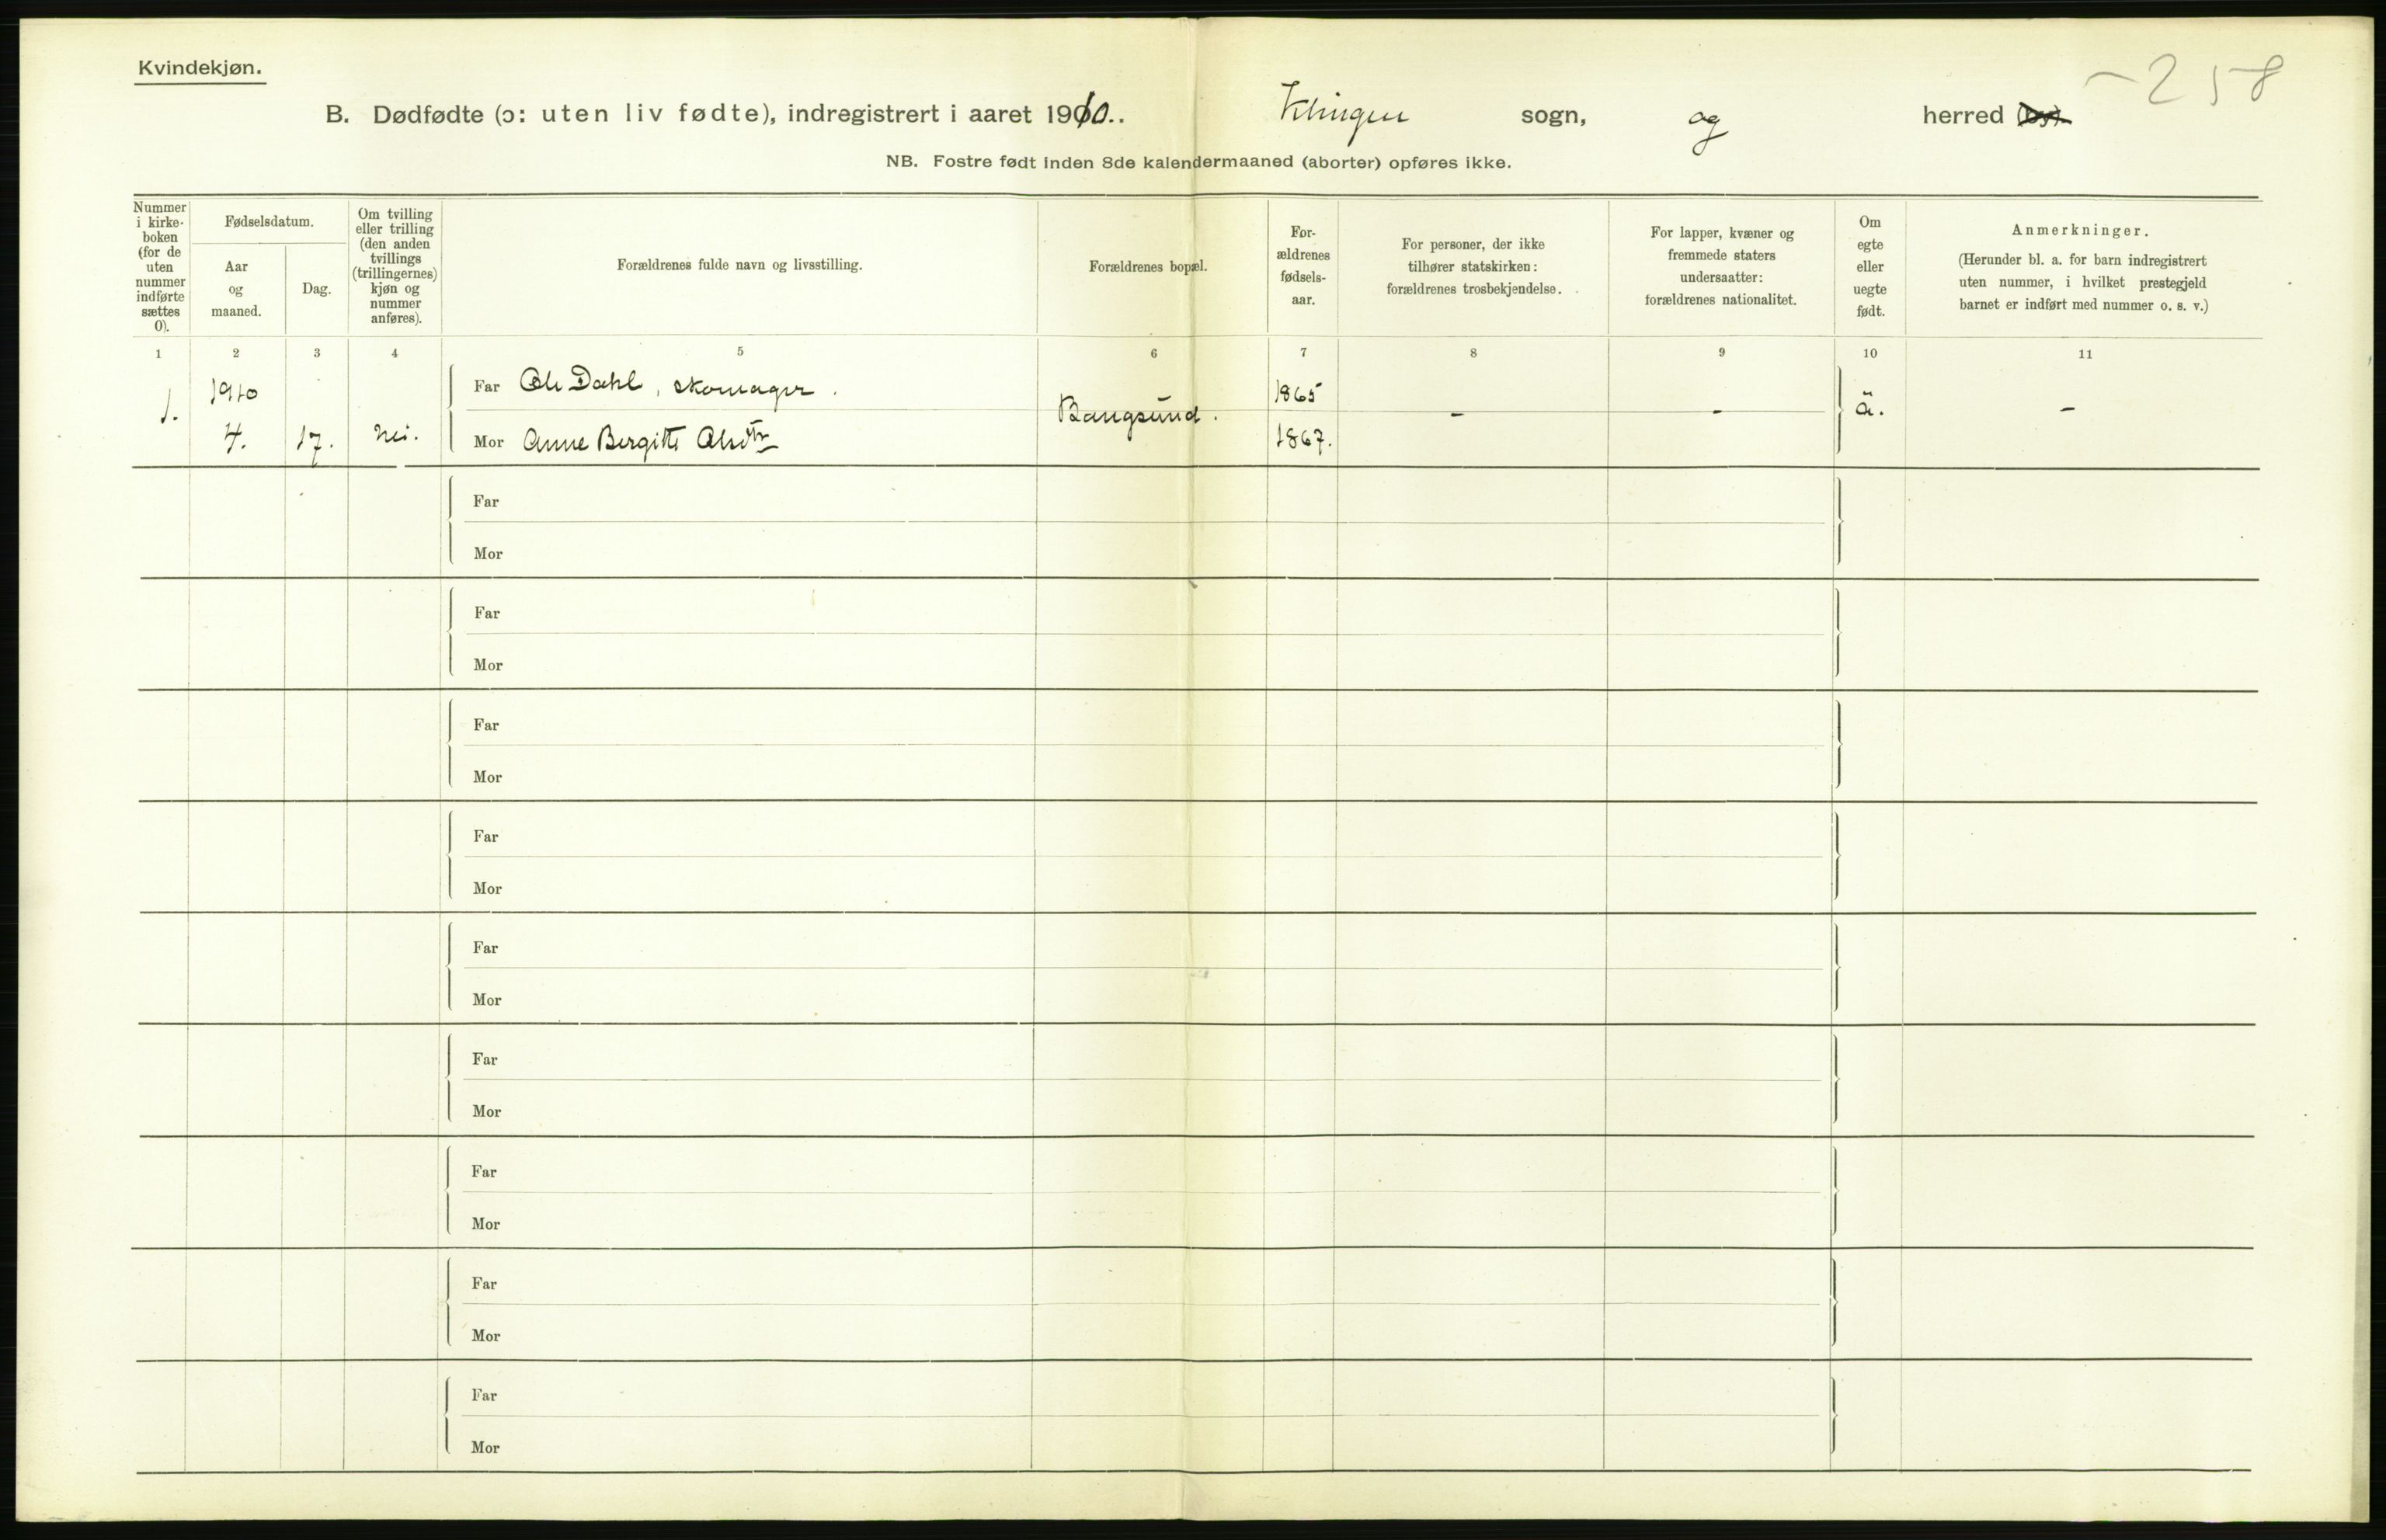 Kvindekjøn.
258
B. Dødfødte (ɔ: uten liv fødte), indregistrert i aaret 1910.. Klingen sogn, og herred (by).
NB. Fostre født inden 8de kalendermaaned (aborter) opføres ikke.
Nummer
i kirke-
boken
(for de
uten
nummer
indførte
sættes
0).
Fødselsdatum.
Aar
og
maaned.
Dag.
Om tvilling
eller trilling
(den anden
tvillings
(trillingernes)
kjøn og
nummer
anføres).
Forældrenes fulde navn og livsstilling.
Forældrenes bopæl.
For-
ældrenes
fødsels-
aar.
For personer, der ikke
tilhører statskirken:
forældrenes trosbekjendelse.
For lapper, kvæner og
fremmede staters
undersaatter:
forældrenes nationalitet.
Om
egte
eller
uegte
født.
Anmerkninger.
(Herunder bl. a. for barn indregistrert
uten nummer, i hvilket prestegjeld
barnet er indført med nummer o. s. v.)
1 2 3 4 5 6 7 8 9 10 11
1. 1910 Far Ole Dahl, skomager. Bangsund. 1865 - - ä. -
4. 17. Nei. Mor Anne Bergitte Olsdtr 1867.
Far
Mor
Far
Mor
Far
Mor
Far
Mor
Far
Mor
Far
Mor
Far
Mor
Far
Mor
Far
Mor